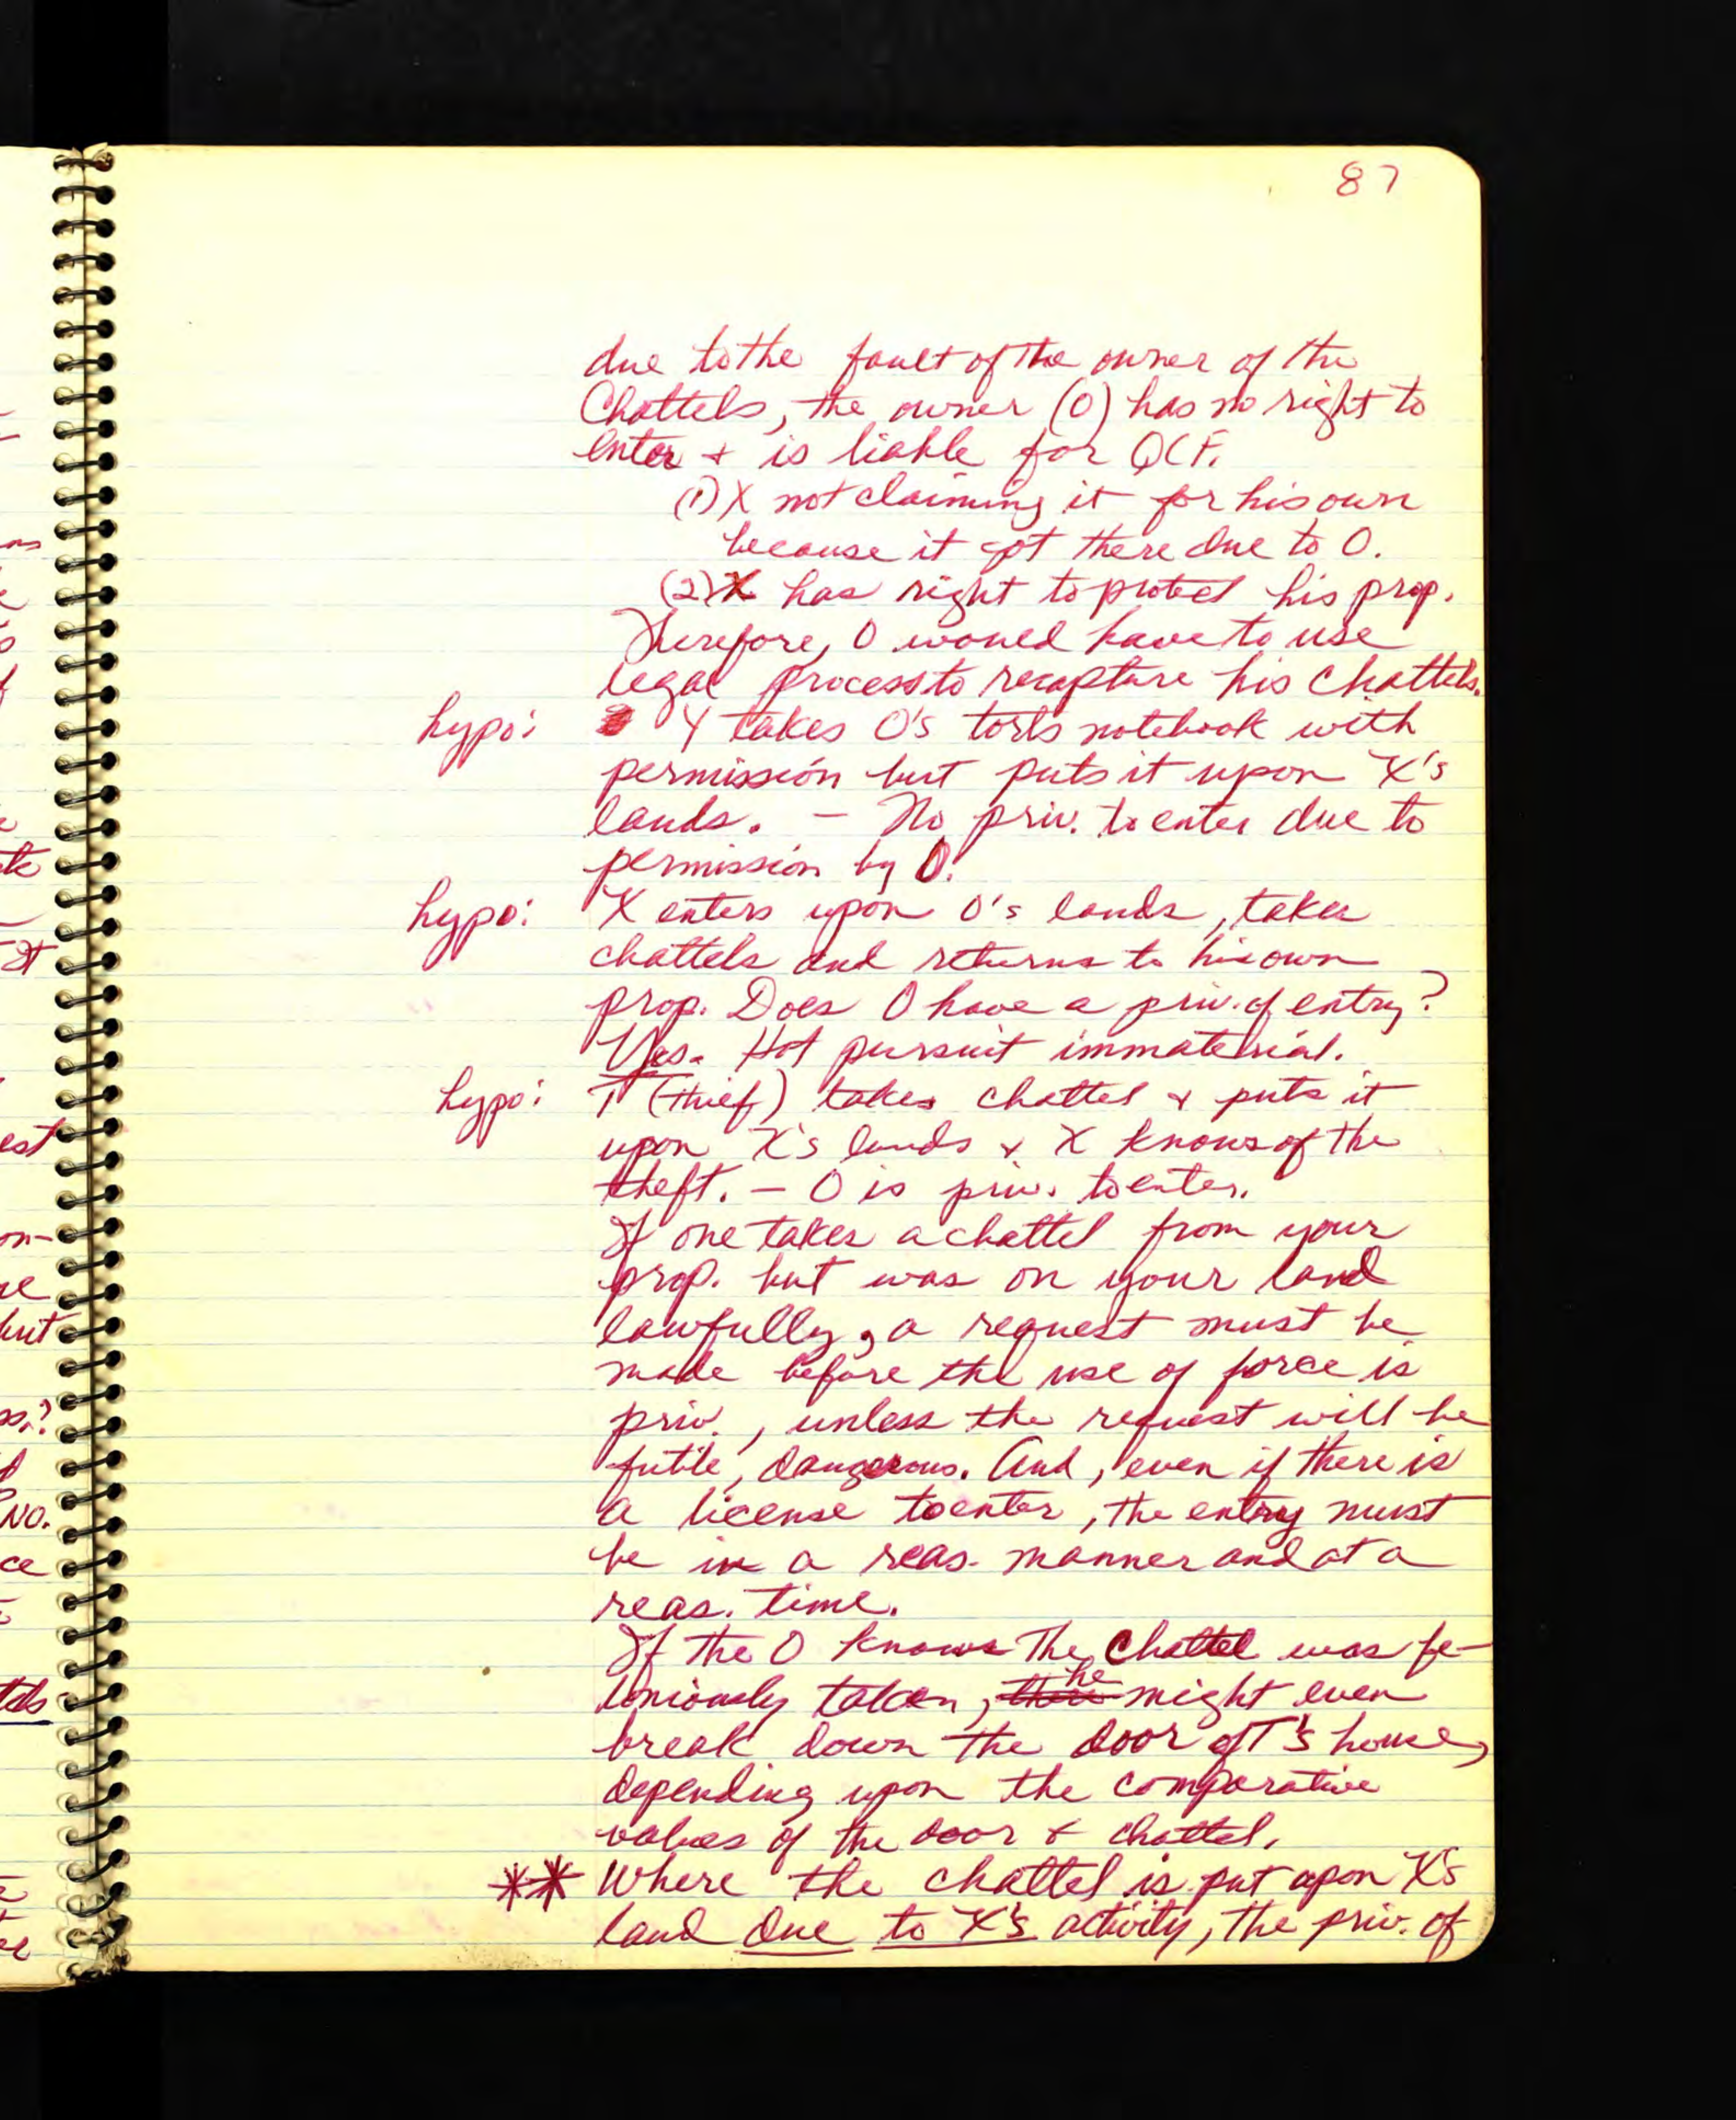 87
due to the fault of the owner of the
Chattels, the owner (O) has no right to
enter + is liable for QCF.
(1) X not claiming it for his own
because it got there due to O.
(2) X has right to protect his prop.
Therefore, O would have to use
legal process to recapture his chattels.
hypo: Y takes O's torts notebook with
permission but puts it upon X's
lands. - No priv. to enter due to
permission by O.
hypo: X enters upon O's lands, takes
chattels and returns to his own
prop. Does O have a priv. of entry?
Yes. Hot pursuit immaterial.
hypo: T (thief) takes chattel + puts it
upon X's lands + X knows of the
theft. - O is priv. to enter.
If one takes a chattel from your
prop. but was on your land
lawfully, a request must be
made before the use of force is
priv., unless the request will be
futile, dangerous. And, even if there is
a license to enter, the entry must
be in a reas. manner and at a
reas. time.
If the O knows the chattel was fe-
loniously taken, he might even
break down the door of T's house,
depending upon the comparative
values of the door + chattel.
** Where the chattel is put upon X's
land due to X's activity, the priv. of